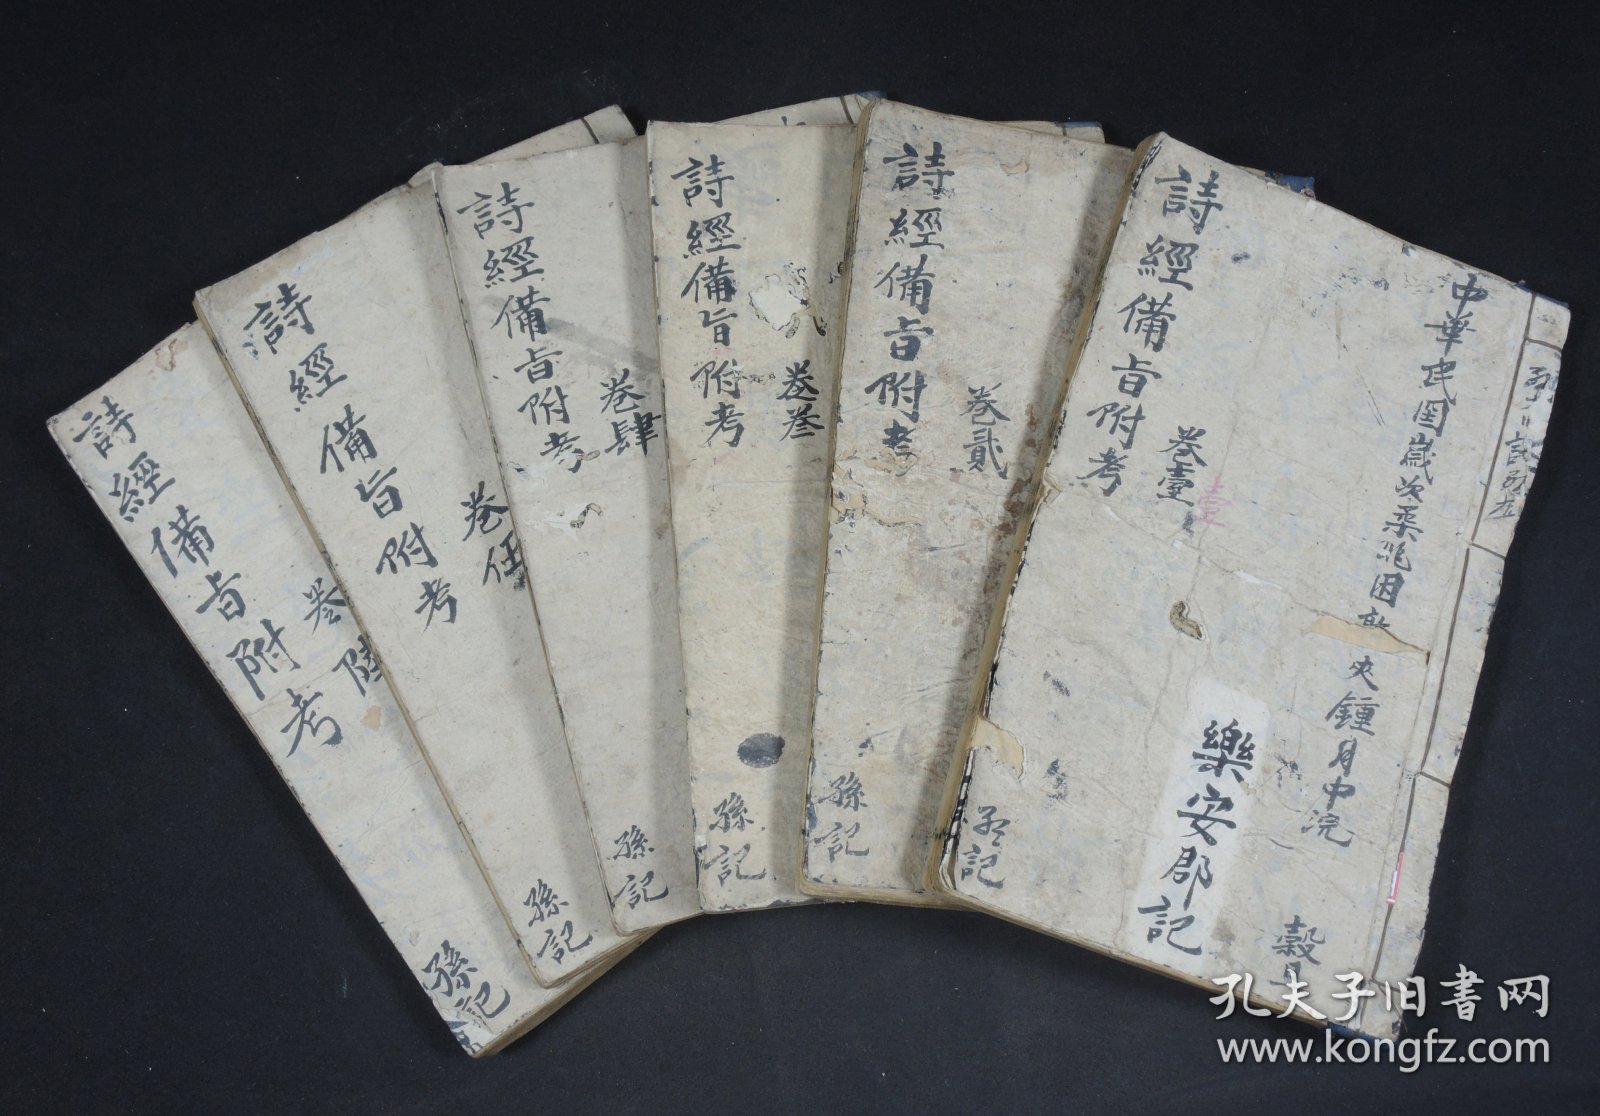 中華民国歲次柔兆困敦
夾鐘月中浣
穀旦
樂安郡記
詩經備旨附考
卷壹
壹
孫記
詩經備旨附考
卷貳
孫記
詩經備旨附考
卷叁
孫記
詩經備旨附考
卷肆
孫記
詩經備旨附考
卷伍
孫記
詩經備旨附考
卷陸
孫記
孔夫子旧書网
www.kongfz.com